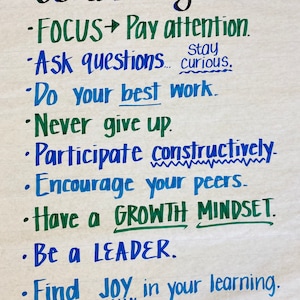 · FOCUS → Pay attention.
· Ask questions... stay curious.
· Do your best work.
· Never give up.
· Participate constructively.
· Encourage your peers.
· Have a GROWTH MINDSET.
· Be a LEADER.
· Find JOY in your learning.